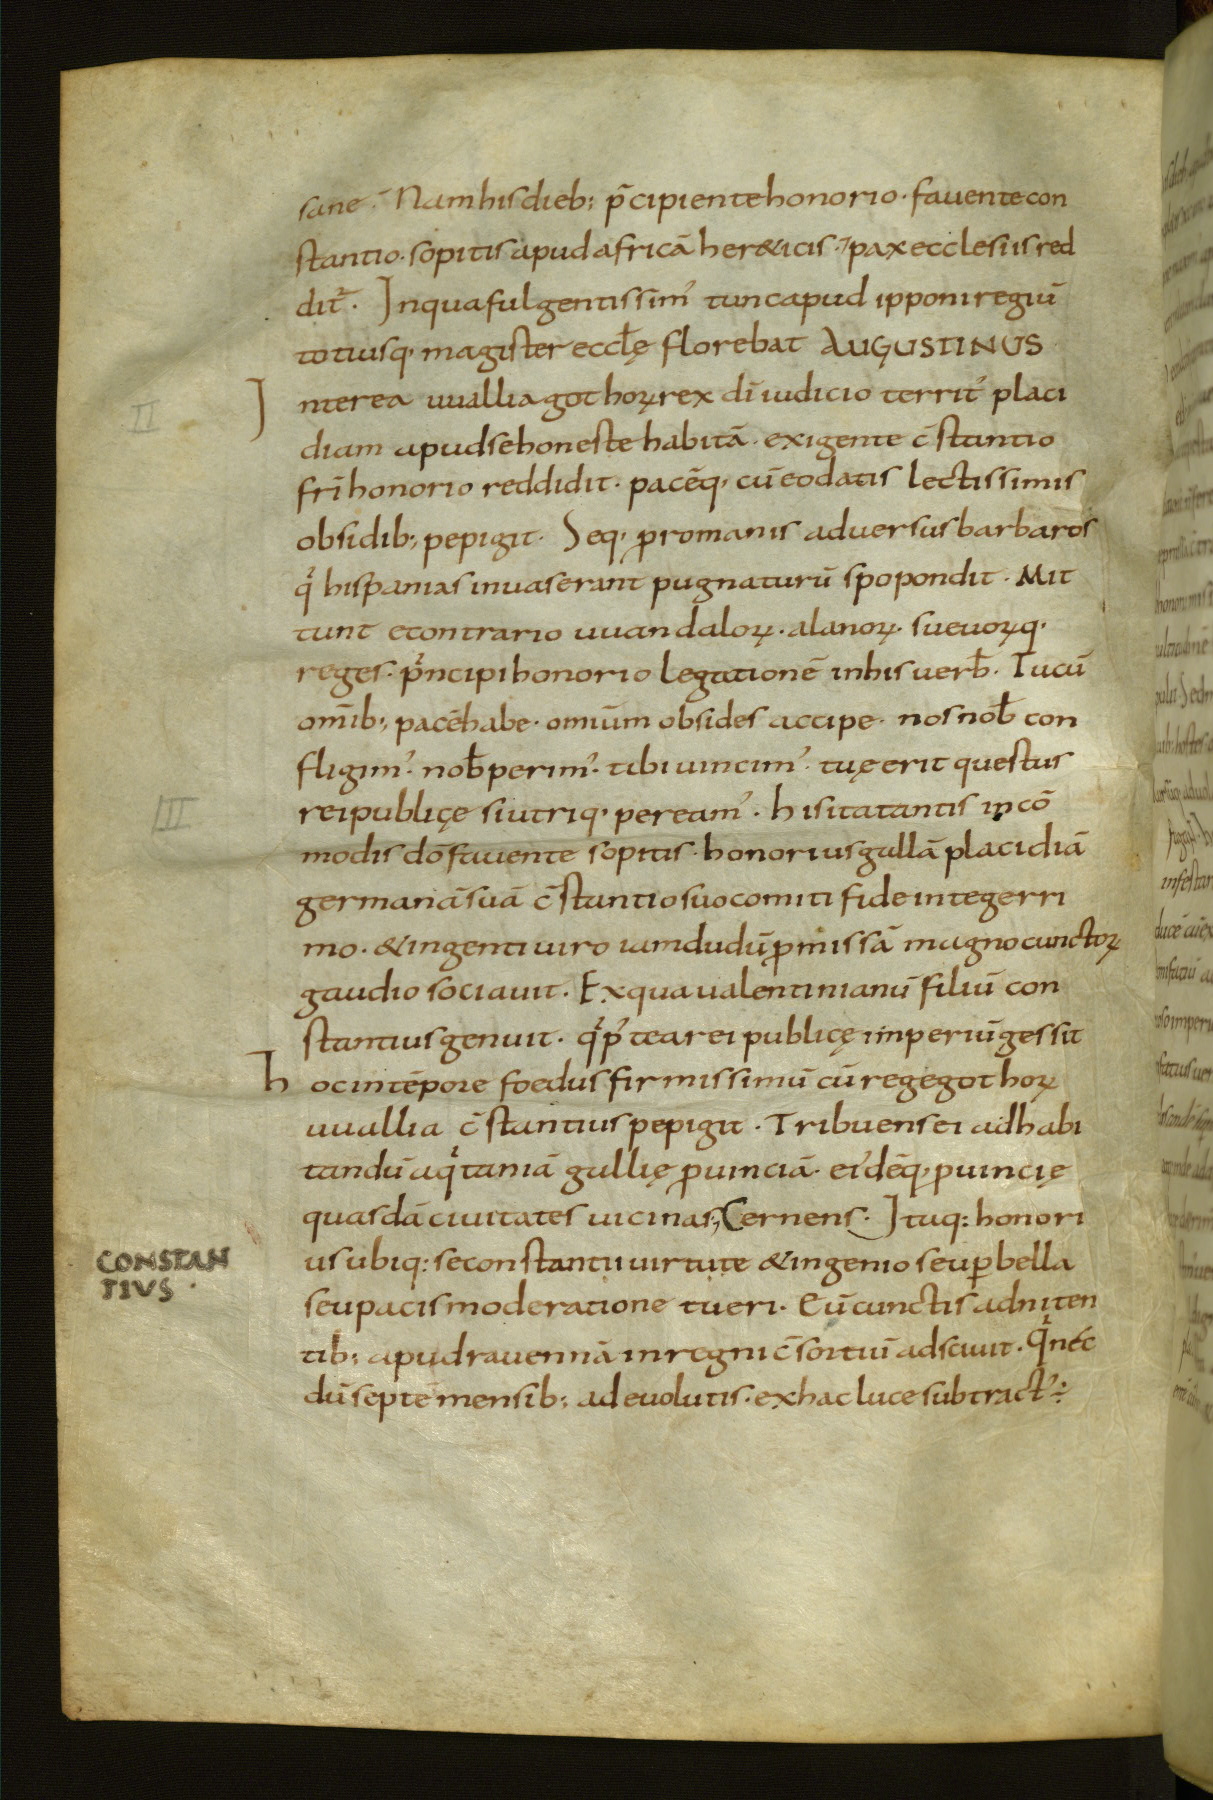 sane. Nam his dieb; p̄cipiente honorio· favente con
stantio· sopitis apud africā her&icis· ⁊ pax ecclesiis red
dit̄· In qua fulgentissim᾿ tunc apud ipponiregiū
totiusq· magister eccl̄ę florebat AUGUSTINUS
II
Interea uuallia gothoꝝ rex dī iudicio territ᾿ placi
diam apud se honeste habitā· exigente c̄stantio
fr̄i honorio reddidit· pacēq· cū eo datis lectissimis
obsidib; pepigit· Seq· ꝓ romanis adversus barbaros
qͥ hispanias invaserant pugnaturū spopondit· Mit
tunt econtrario uuandaloꝝ· alanoꝝ· suevoꝝq·
reges· pͥncipi honorio legationē in his verb̄· Tu cū
om̄ib; pacē habe· omiūm obsides accipe· nos nob̄ con
fligim᾿· nob̄ perim᾿· tibi vincim᾿· tuę erit questus
III
reipublicę si utriq· peream᾿· hisitatantis incō
modis dō favente sopitis· honorius gallā placidiā
germanā suā c̄stantio suo comiti fide integerri
mo· & ingenti viro iamdudū ꝓmissā magno cunctoꝝ
gaudio sociavit· Ex qua valentinianū filiū con
stantius genuit· qͥ p᾿tea reipublicę imperiū gessit
hoc intēpore foedus firmissimū cū rege gothoꝝ
uuallia c̄stantius pepigit· Tribuens ei ad habi
tandū aqͥtaniā gallię ꝓvinciā· ei᾿dēq· ꝓvincię
quasdā civitates vicinas; Cernens· Ituq: honori
us ubiq: se constantii virtute & ingenio seu ꝑ bella
CONSTAN
TIVS·
seu pacis moderatione tueri· Eū cunctis adniten
tib; apud ravennā in regni c̄sortiū adscivit· Qͥ nec
dū septē mensib; ad evolutis· ex hac luce subtract᾿: